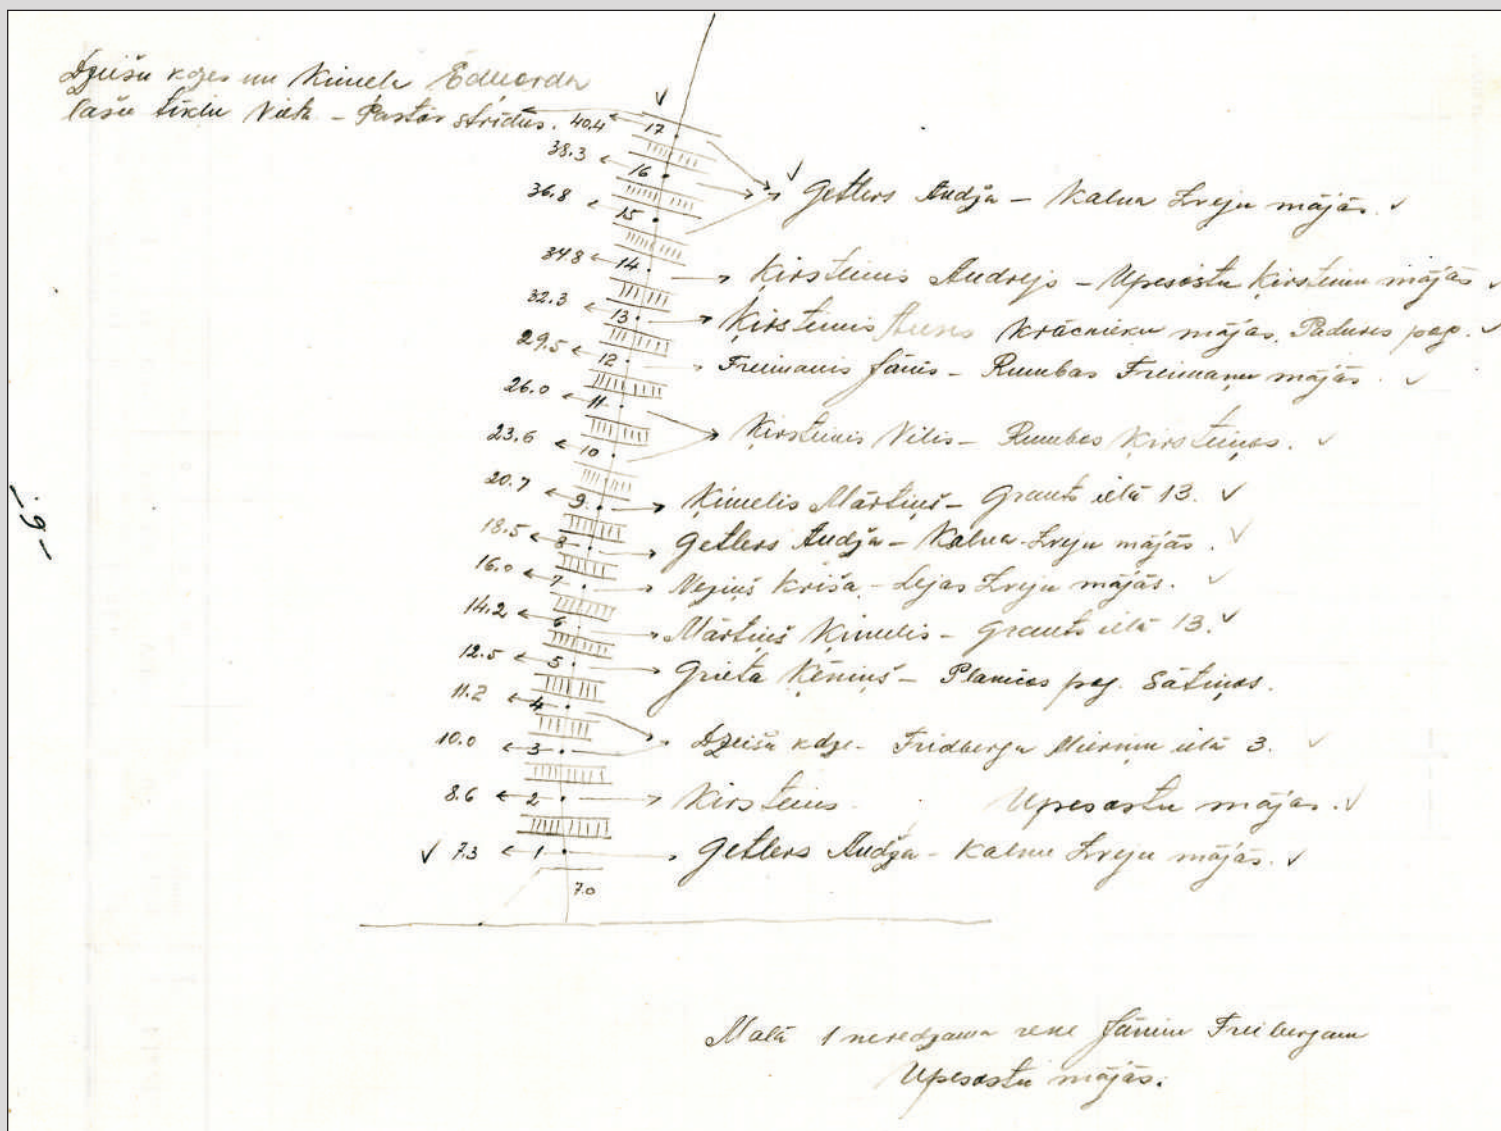 Dzeišu kdzes un Ķimeļa Eduarda
lašu tīklu vieta - Pastāv strīdus. 40.4 17
38.3 16
36.8 15 Getlers Andža - Kalna Zveju mājās.
34.8 14 Ķirsteinis Andrejs - Upesostu Ķirsteiņu mājās
32.3 13 Ķirsteinis Krācnieku mājās, Padures pag.
29.5 12 Freimanis Jānis - Rumbas Freimaņu mājās.
26.0 11
23.6 10 Ķirsteinis Vilis - Rumbas Ķirsteiņos.
20.7 9 Ķimelis Mārtiņš - Grants ielā 13.
18.5 8 Getlers Andža - Kalna-Zveju mājās.
16.0 7 Kriša - Lejas Zveju mājās.
14.2 6 Mārtiņš Ķimelis - Grants ielā 13.
12.5 5 Grieta Ķēniņš - Planicas pag. Sātiņos.
11.2 4
10.0 3 Dzeiša kdze - Fridberga Mierniņu ielā 3.
8.6 2 Ķirsteins Upesostu mājās.
7.3 1 Getlers Andža - Kalnu Zveju mājās.
7.0
Malā 1 neredzama rene Jānim Freibergam
Upesostu mājās.
-9-